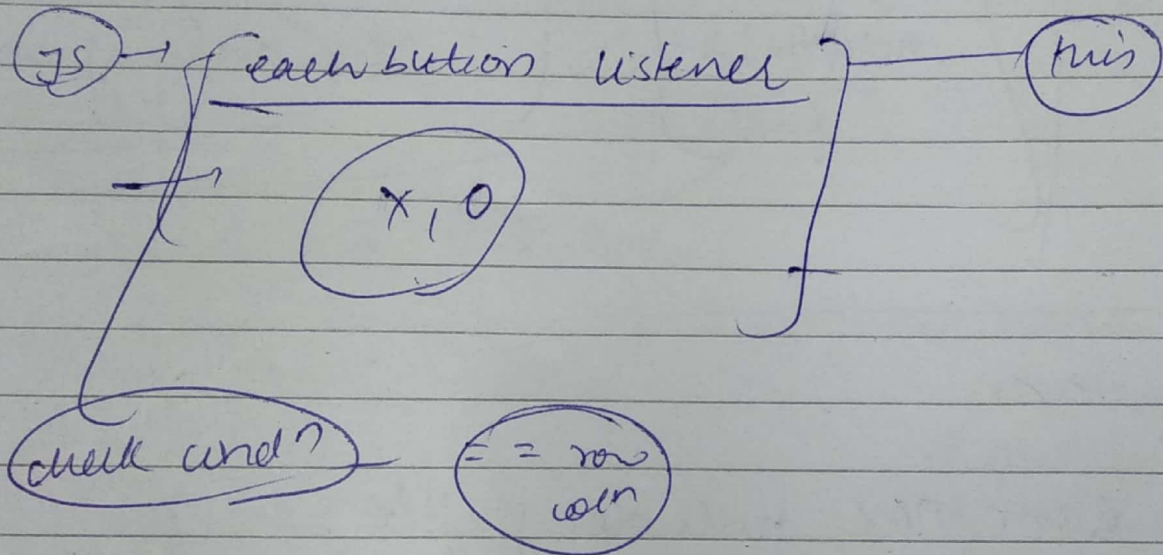 JS → each button listener this
X, O
check condⁿ
= = row
colⁿ